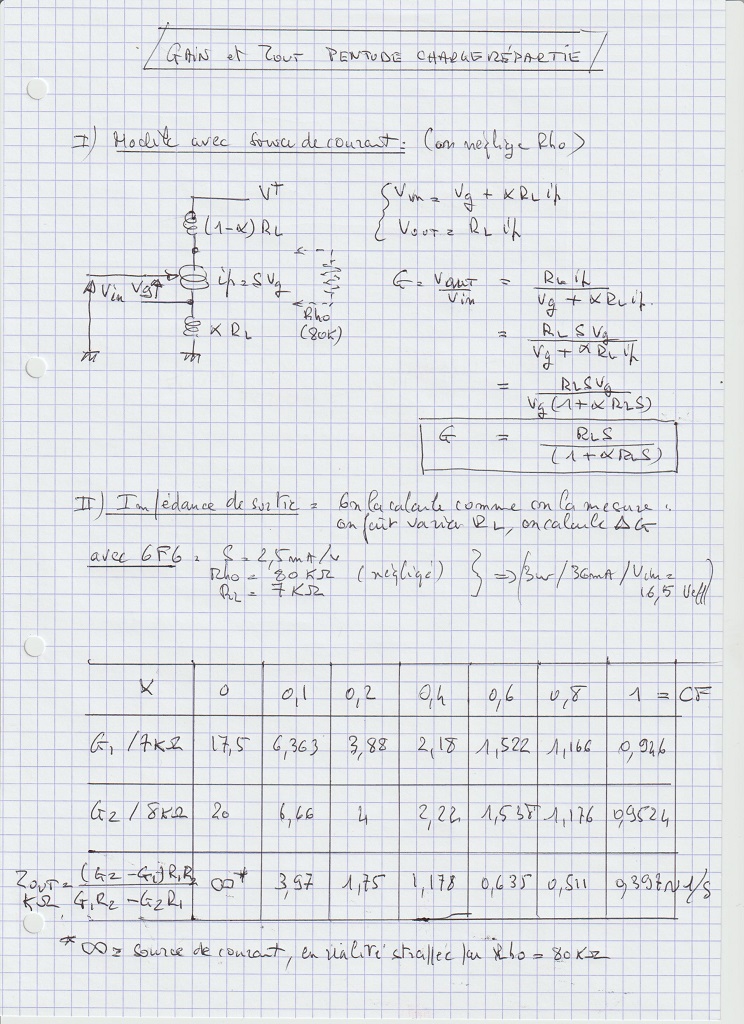 GAIN et ZOUT PENTODE CHARGE RÉPARTIE
I) Modèle avec source de courant : (on néglige Rho)
V+
(1-α) RL
ip = S Vg
Vin Vg
α RL
Rho
(80K)
Vin = Vg + α RL ip
VOUT = RL ip
G = Vout / Vin = RL ip / Vg + α RL ip
= RL S Vg / Vg + α RL ip
= RL S Vg / Vg (1 + α RL S)
G = RL S / (1 + α RL S)
II) Impédance de sortie = On la calcule comme on la mesure :
on fait varier RL, on calcule ΔG
avec 6F6 : S = 2,5 mA/V
Rho = 80 KΩ (négligé)
RL = 7 KΩ
=> (3W / 36mA / Vin = 16,5 Veff)
α 0 0,1 0,2 0,4 0,6 0,8 1 = CF
G1 / 7KΩ 17,5 6,363 3,88 2,18 1,522 1,166 0,946
G2 / 8KΩ 20 6,66 4 2,22 1,538 1,176 0,9524
ZOUT = (G2 - G1) R1 R2 / G1 R2 - G2 R1 KΩ ∞* 3,97 1,75 1,178 0,635 0,511 0,397 ~ 1/S
* ∞ = source de courant, en réalité shuntée par Rho = 80 KΩ